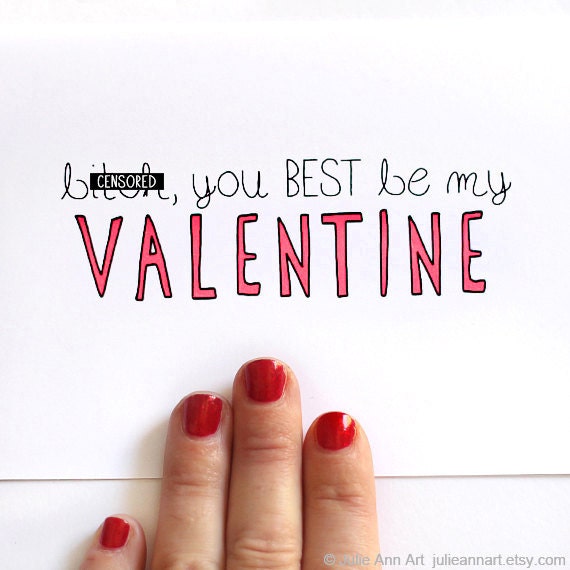 CENSORED
bitch, you BEST be my
VALENTINE
© Julie Ann Art julieannart.etsy.com